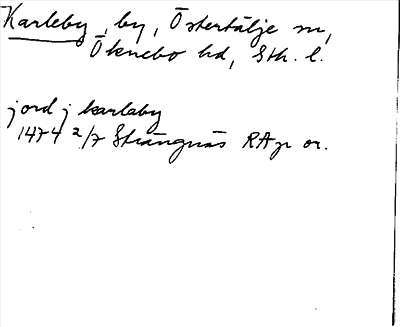 Karleby, by, Östertälje sn,
Öknebo hd, Sth. l.
jord j karlaby
1474 2/7 Strängnäs RAp or.